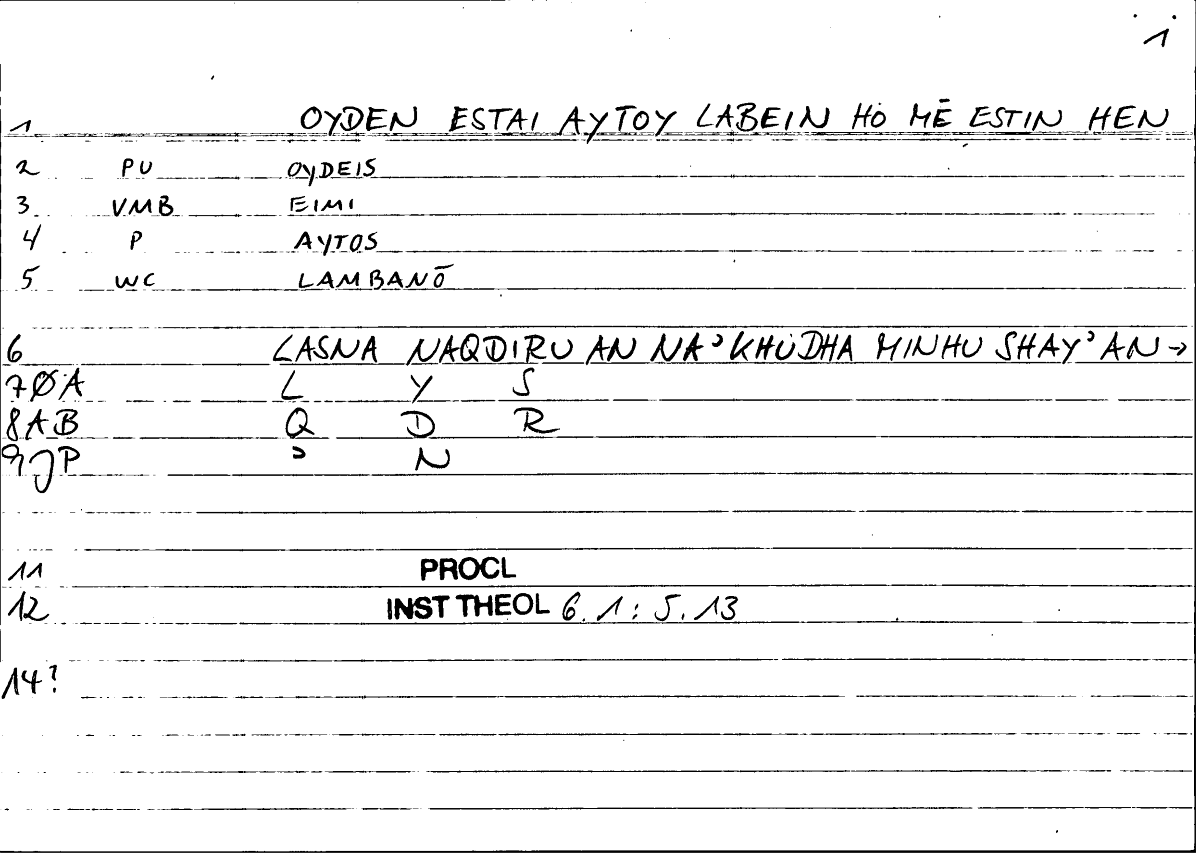 1
1 OYDEN ESTAI AYTOY LABEIN HO MĒ ESTIN HEN
2 PU OYDEIS
3 VMB EIMI
4 P AYTOS
5 WC LAMBANŌ
6 LASNA NAQDIRU AN NA'KHUDHA MINHU SHAY'AN →
7ØA L Y S
8AB Q D R
9JP ' N
11 PROCL
12 INST THEOL 6.1:5.13
14?